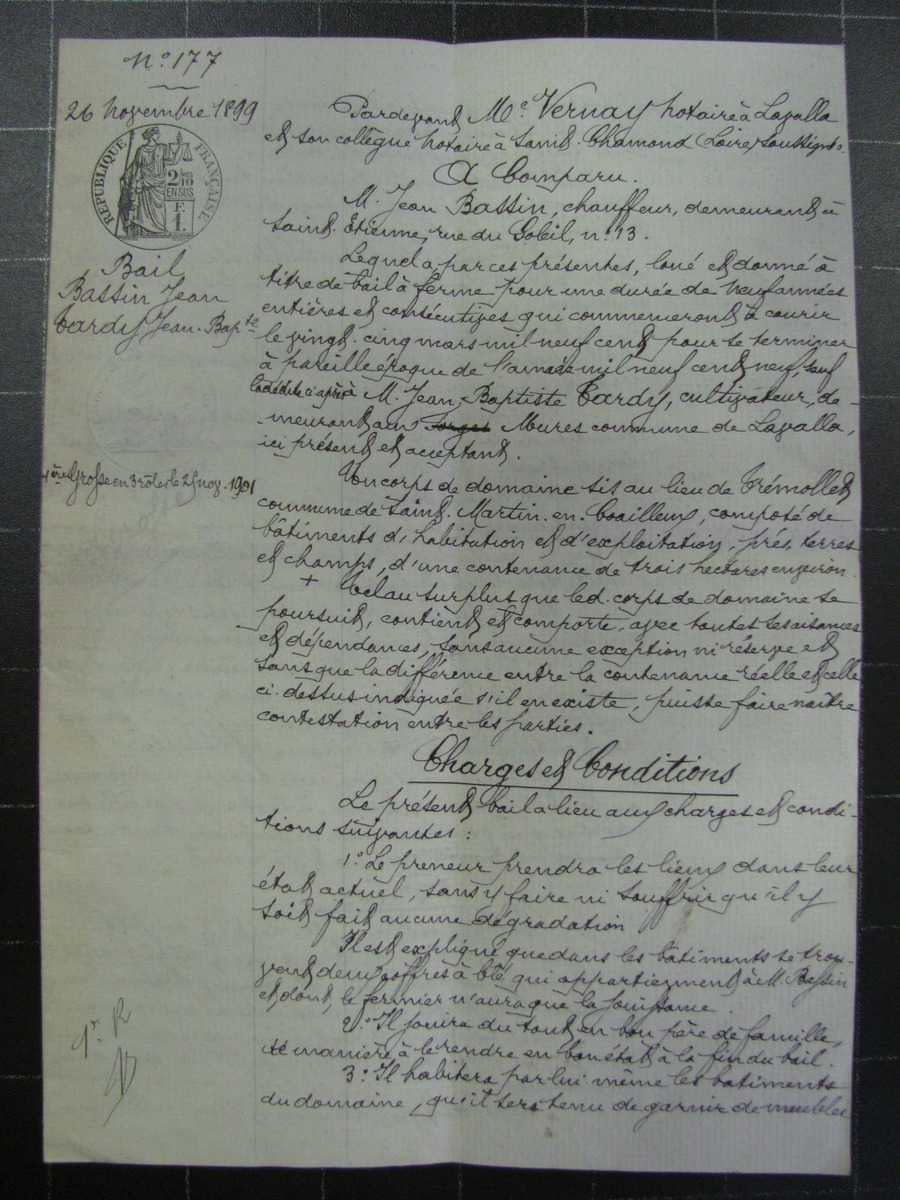 N° 177
26 Novembre 1899
RÉPUBLIQUE FRANÇAISE
2/10
EN SUS
F.
1.
Bail
Bassin Jean
Tardy Jean-Bapte
1ère Grosse en 3 rôles le 25 nov. 1901
Pardevant Me Vernay notaire à Lavalla
et son collègue notaire à Saint-Chamond (Loire) soussignés.
A Comparu.
M. Jean Bassin, chauffeur, demeurant à
Saint-Etienne, rue du Soleil, n° 13.
Lequel a par ces présentes, loué et donné à
titre de bail à ferme pour une durée de neuf années
entières et consécutives qui commenceront à courir
le vingt-cinq mars mil neuf cent pour se terminer
à pareille époque de l'année mil neuf cent neuf, sauf
la dédite ci après à M. Jean-Baptiste Tardy, cultivateur, de-
meurant aux Mures commune de Lavalla,
ici présent et acceptant.
Un corps de domaine sis au lieu de Trémollet
commune de Saint-Martin-en-Coailleux, composé de
bâtiments d'habitation et d'exploitation, prés, terres
et champs, d'une contenance de trois hectares environ.
+ Tel au surplus que led. corps de domaine se
poursuit, contient et comporte, avec toutes ses aisances
et dépendances, sans aucune exception ni réserve et
sans que la différence entre la contenance réelle et celle
ci-dessus indiquée s'il en existe, puisse faire naître
contestation entre les parties.
Charges et Conditions
Le présent bail a lieu aux charges et condi-
tions suivantes :
1° Le preneur prendra les lieux dans leur
état actuel, sans y faire ni souffrir qu'il y
soit fait aucune dégradation
Il est expliqué que dans les bâtiments se trou-
vent deux coffres à blé qui appartiennent à M. Bassin
et dont le fermier n'aura que la jouissance.
2° Il jouira du tout en bon père de famille,
de manière à le rendre en bon état à la fin du bail.
3° Il habitera par lui-même les bâtiments
du domaine, qu'il sera tenu de garnir de meubles
1er R